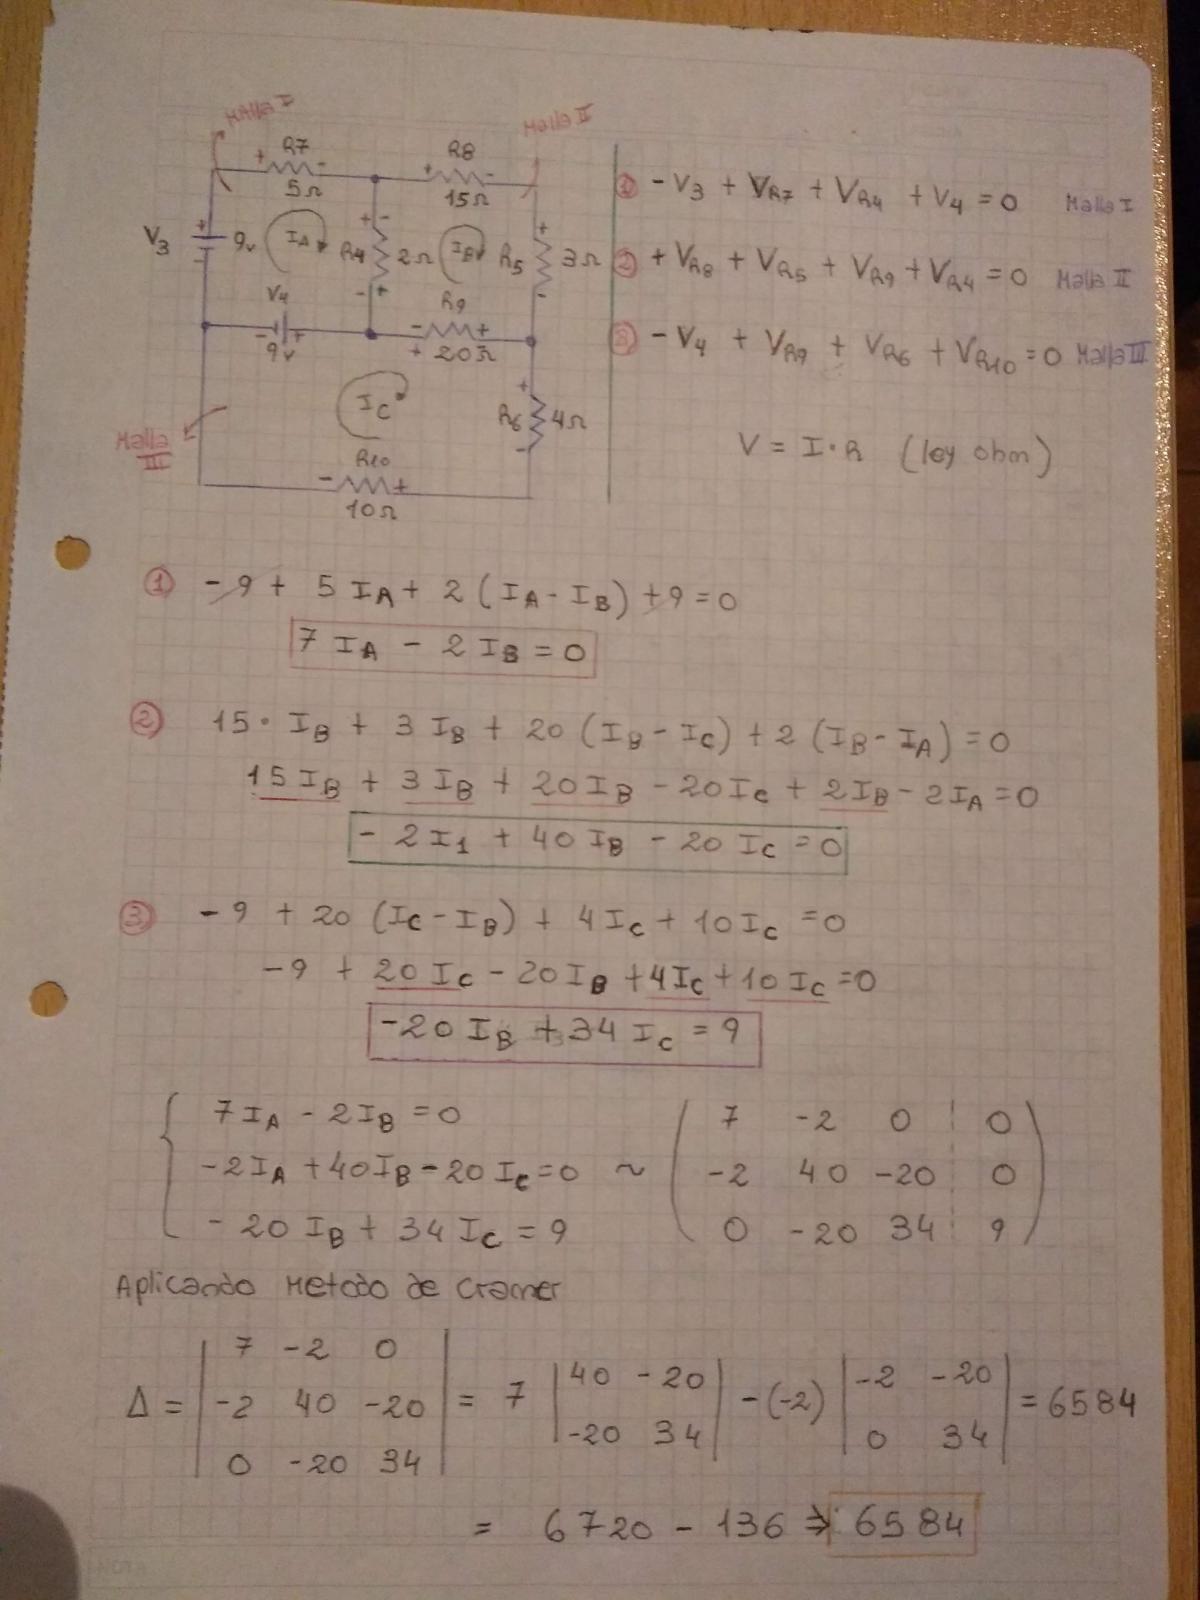 Malla I
Malla II
R7
5Ω
R8
15Ω
V3
9v
IA
R4
2Ω
IB
R5
3Ω
V4
9v
R9
20Ω
IC
R6
4Ω
Malla III
R10
10Ω
① -V3 + VR7 + VR4 + V4 = 0 Malla I
② + VR8 + VR5 + VR9 + VR4 = 0 Malla II
③ -V4 + VR9 + VR6 + VR10 = 0 Malla III
V = I·R (ley ohm)
① -9 + 5 IA + 2 (IA - IB) + 9 = 0
7 IA - 2 IB = 0
② 15· IB + 3 IB + 20 (IB - IC) + 2 (IB - IA) = 0
15 IB + 3 IB + 20 IB - 20 IC + 2 IB - 2 IA = 0
- 2 I1 + 40 IB - 20 IC = 0
③ -9 + 20 (IC - IB) + 4 IC + 10 IC = 0
-9 + 20 IC - 20 IB + 4 IC + 10 IC = 0
-20 IB + 34 IC = 9
7 IA - 2 IB = 0 7 -2 0 0
-2 IA + 40 IB - 20 IC = 0 ~ -2 40 -20 0
- 20 IB + 34 IC = 9 0 -20 34 9
Aplicando Metodo de Cramer
7 -2 0
Δ = -2 40 -20 = 7 |40 -20| -(-2) |-2 -20| = 6584
0 -20 34 |-20 34| |0 34|
= 6720 - 136 ⇒ 6584